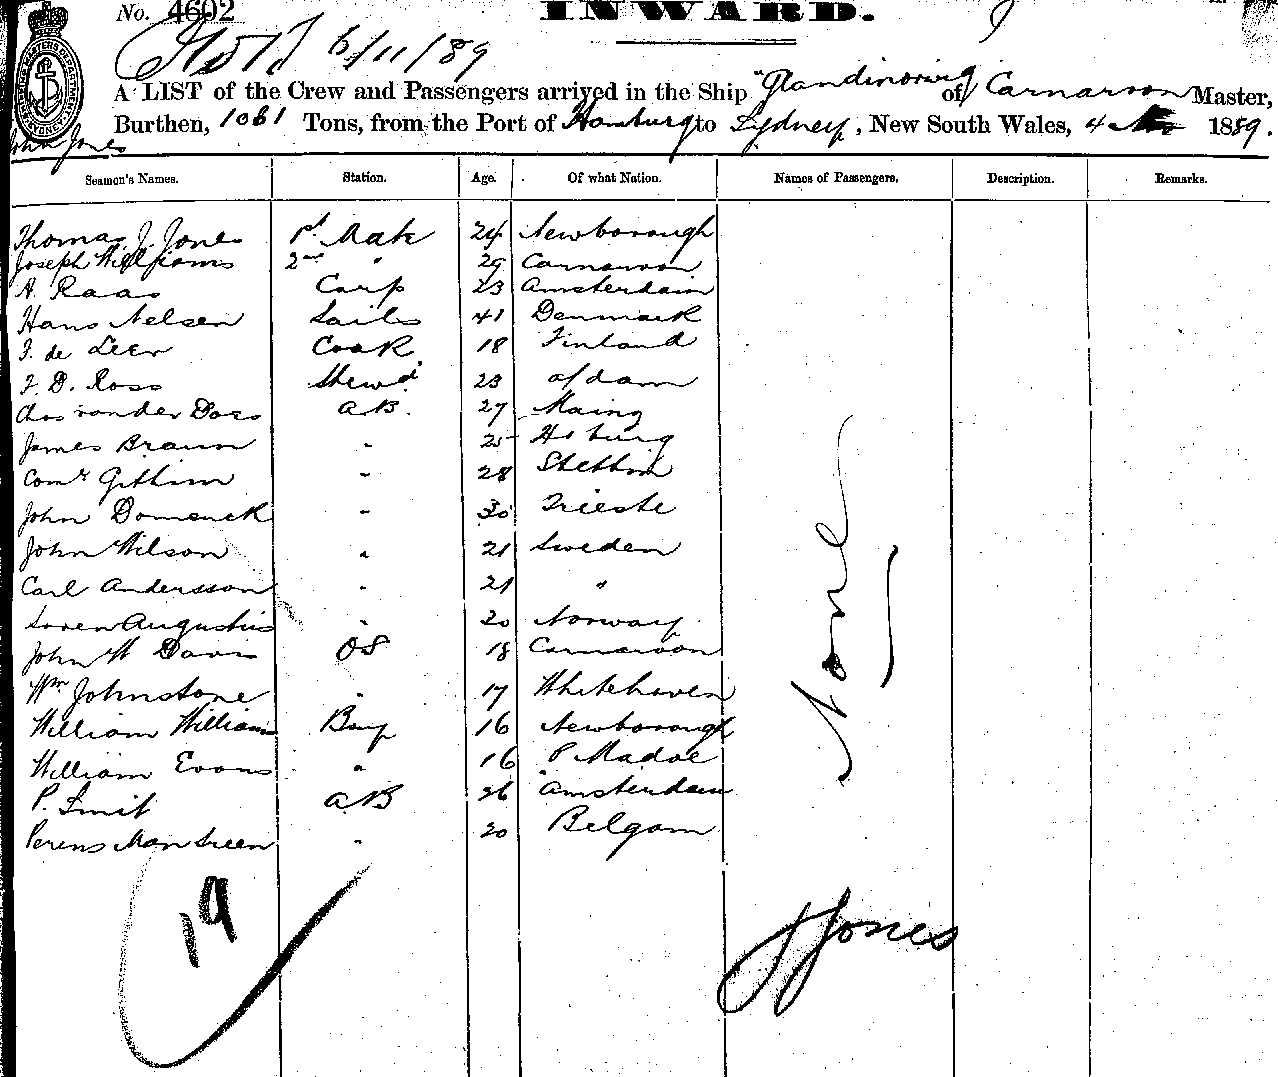 No. 4602 INWARD.
6/11/89
A LIST of the Crew and Passengers arrived in the Ship "Glandinorwig of Carnarvon Master,
Burthen, 1061 Tons, from the Port of Hamburg to Sydney, New South Wales, 4 Nov 1889.
John Jones
Seamen's Names. Station. Age. Of what Nation. Names of Passengers. Description. Remarks.
Thomas J. Jones 1st Mate 24 Newborough
Joseph Williams 2nd " 29 Carnarvon
A. Raas Carp 23 Amsterdam
Hans Nelsen Sails 41 Denmark
F. de Leer Cook 18 Finland
F. D. Ross Stewd 23 A/dam
Chas van der Does A.B. 27
James Braun " 25 Hoburg
Gethin " 28 Stettin
John Domenick " 30 Trieste
John Wilson " 21 Sweden
Carl Andersson " 21 "
Soren Augustus " 20 Norway
John W Davis OS 18 Carnarvon
Wm Johnstone " 17 Whitehaven
William William Boy 16 Newborough
William Evans " 16 P. Madoc
P. Smit AB 26 Amsterdam
" 20 Belgam
None
19
J Jones